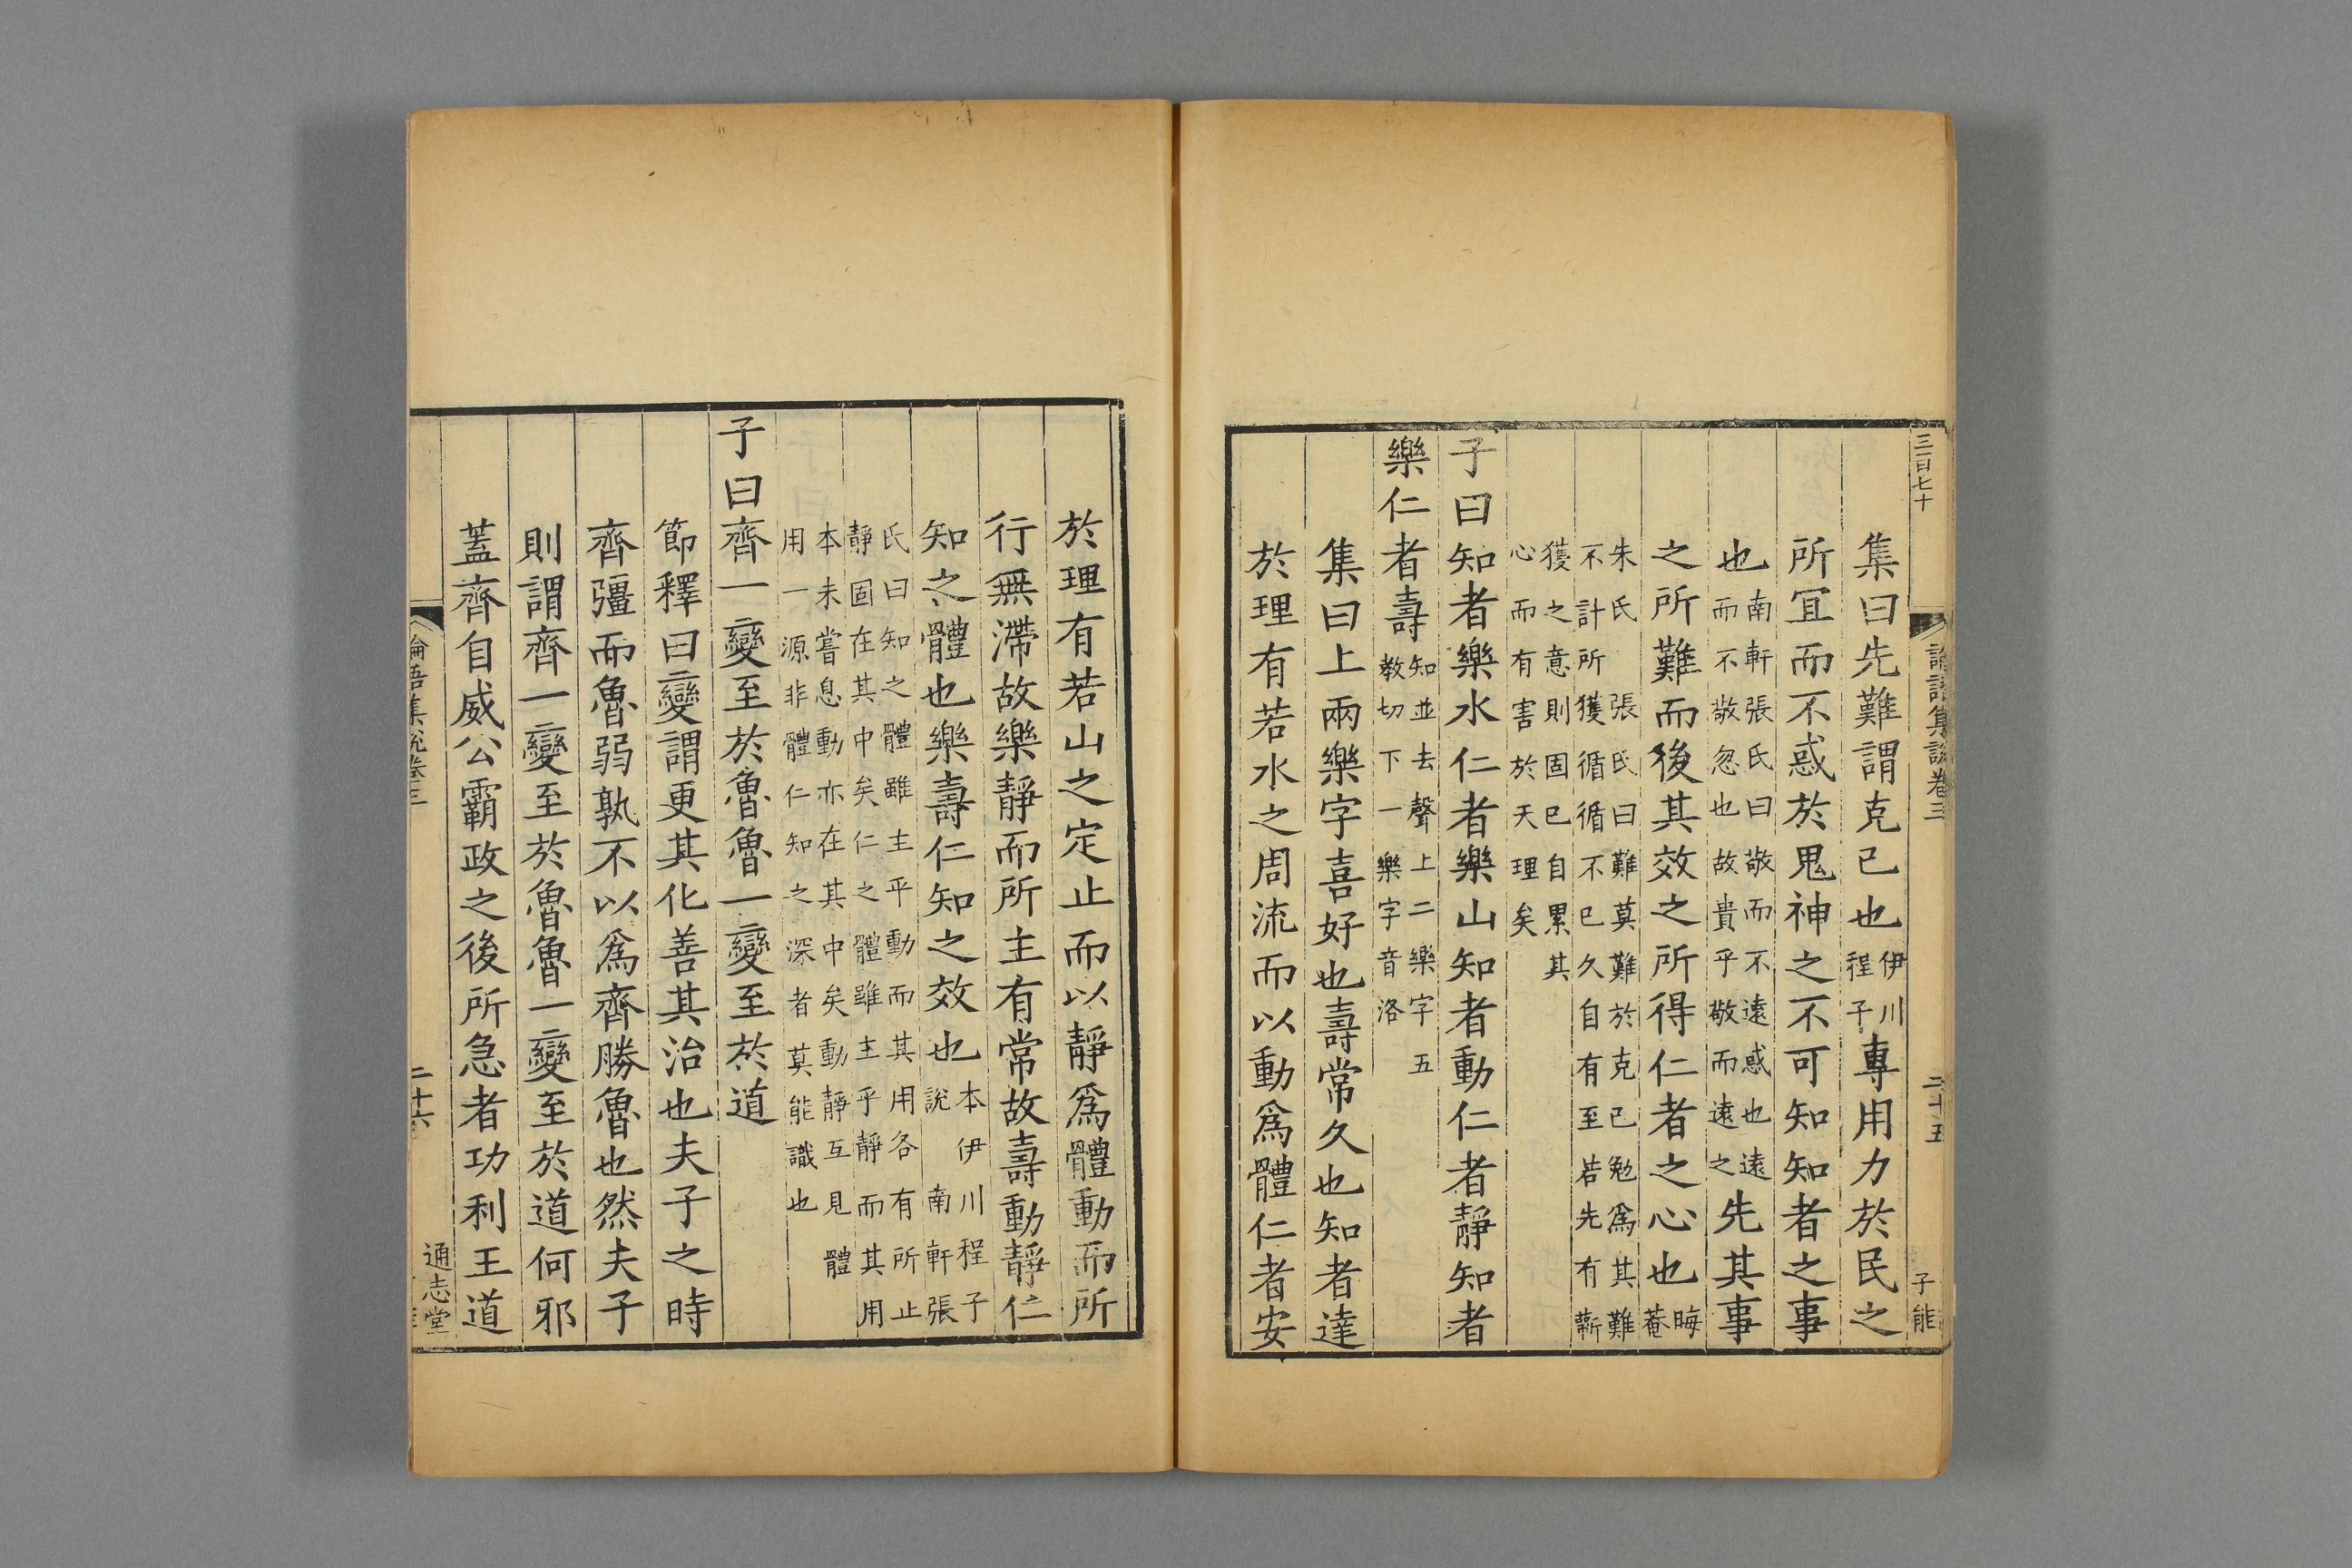 三百七十
論語集說卷三
二十五
子能
集曰先難謂克己也伊川程子專用力於民之
所宜而不惑於鬼神之不可知知者之事
也南軒張氏曰敬而不遠惑也遠而不敬忽也故貴乎敬而遠之先其事
之所難而後其效之所得仁者之心也晦菴
朱氏 張氏曰難莫難於克己勉爲其難
不計所獲循循不已久自有至若先有蘄
獲之意則固已自累其
心而有害於天理矣
子曰知者樂水仁者樂山知者動仁者靜知者
樂仁者壽知並去聲上二樂字五教切下一樂字音洛
集曰上兩樂字喜好也壽常久也知者達
於理有若水之周流而以動爲體仁者安
於理有若山之定止而以靜爲體動而所
行無滯故樂靜而所主有常故壽動靜仁
知之體也樂壽仁知之效也本伊川程子說 南軒張
氏曰知之體雖主乎動而其用各有所止
靜固在其中矣仁之體雖主乎靜而其用
本未嘗息動亦在其中矣動靜互見體
用一源非體仁知之深者莫能識也
子曰齊一變至於魯魯一變至於道
節釋曰變謂更其化善其治也夫子之時
齊彊而魯弱孰不以爲齊勝魯也然夫子
則謂齊一變至於魯魯一變至於道何邪
蓋齊自威公霸政之後所急者功利王道
論語集說卷三
二十六
通志堂